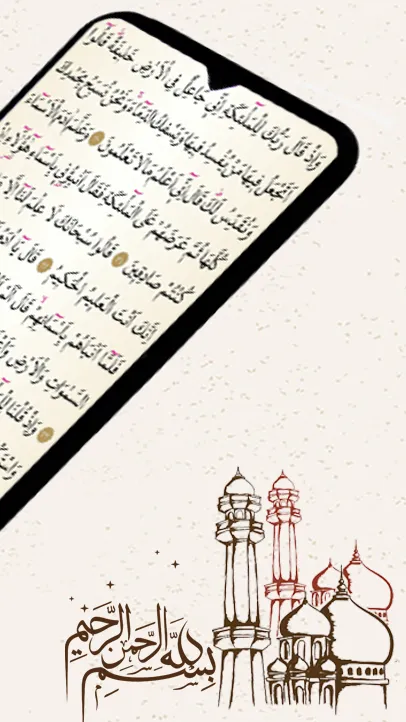 وَإِذْ قَالَ رَبُّكَ لِلْمَلٰٓئِكَةِ اِنّ۪ي جَاعِلٌ فِي الْاَرْضِ خَل۪يفَةً قَالُٓوا
اَتَجْعَلُ ف۪يهَا مَنْ يُفْسِدُ ف۪يهَا وَيَسْفِكُ الدِّمَٓاءَ وَنَحْنُ نُسَبِّحُ بِحَمْدِكَ
وَنُقَدِّسُ لَكَ قَالَ اِنّ۪ٓي اَعْلَمُ مَا لَا تَعْلَمُونَ وَعَلَّمَ اٰدَمَ الْاَسْمَٓاءَ
كُلَّهَا ثُمَّ عَرَضَهُمْ عَلَى الْمَلٰٓئِكَةِ فَقَالَ اَنْبِؤُ۫ن۪ي بِاَسْمَٓاءِ هٰٓؤُ۬لَٓاءِ
كُنْتُمْ صَادِق۪ينَ قَالُوا سُبْحَانَكَ لَا عِلْمَ لَنَٓا اِلَّا
اِنَّكَ اَنْتَ الْعَل۪يمُ الْحَك۪يمُ قَالَ يَٓا اٰدَمُ
فَلَمَّٓا اَنْبَاَهُمْ بِاَسْمَٓائِهِمْ قَالَ
السَّمٰوَاتِ وَالْاَرْضِ
وَاِذْ قُلْنَا
بِسْمِ اللَّهِ الرَّحْمَنِ الرَّحِيمِ